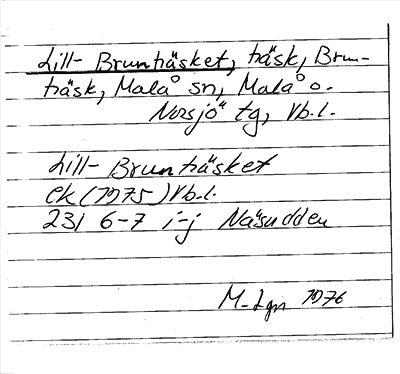 Lill-Brunträsket, träsk, Brun-
träsk, Malå sn, Malå o.
Norsjö tg, Vb.l.
Lill-Brunträsket
ek (1975) Vb.l.
231 6-7 i-j Näsudden
M-Lgn 1976